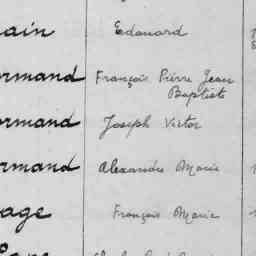 ain Edouard
ormand François Pierre Jean
Baptiste
ormand Joseph Victor
ormand Alexandre Marie
age François Marie